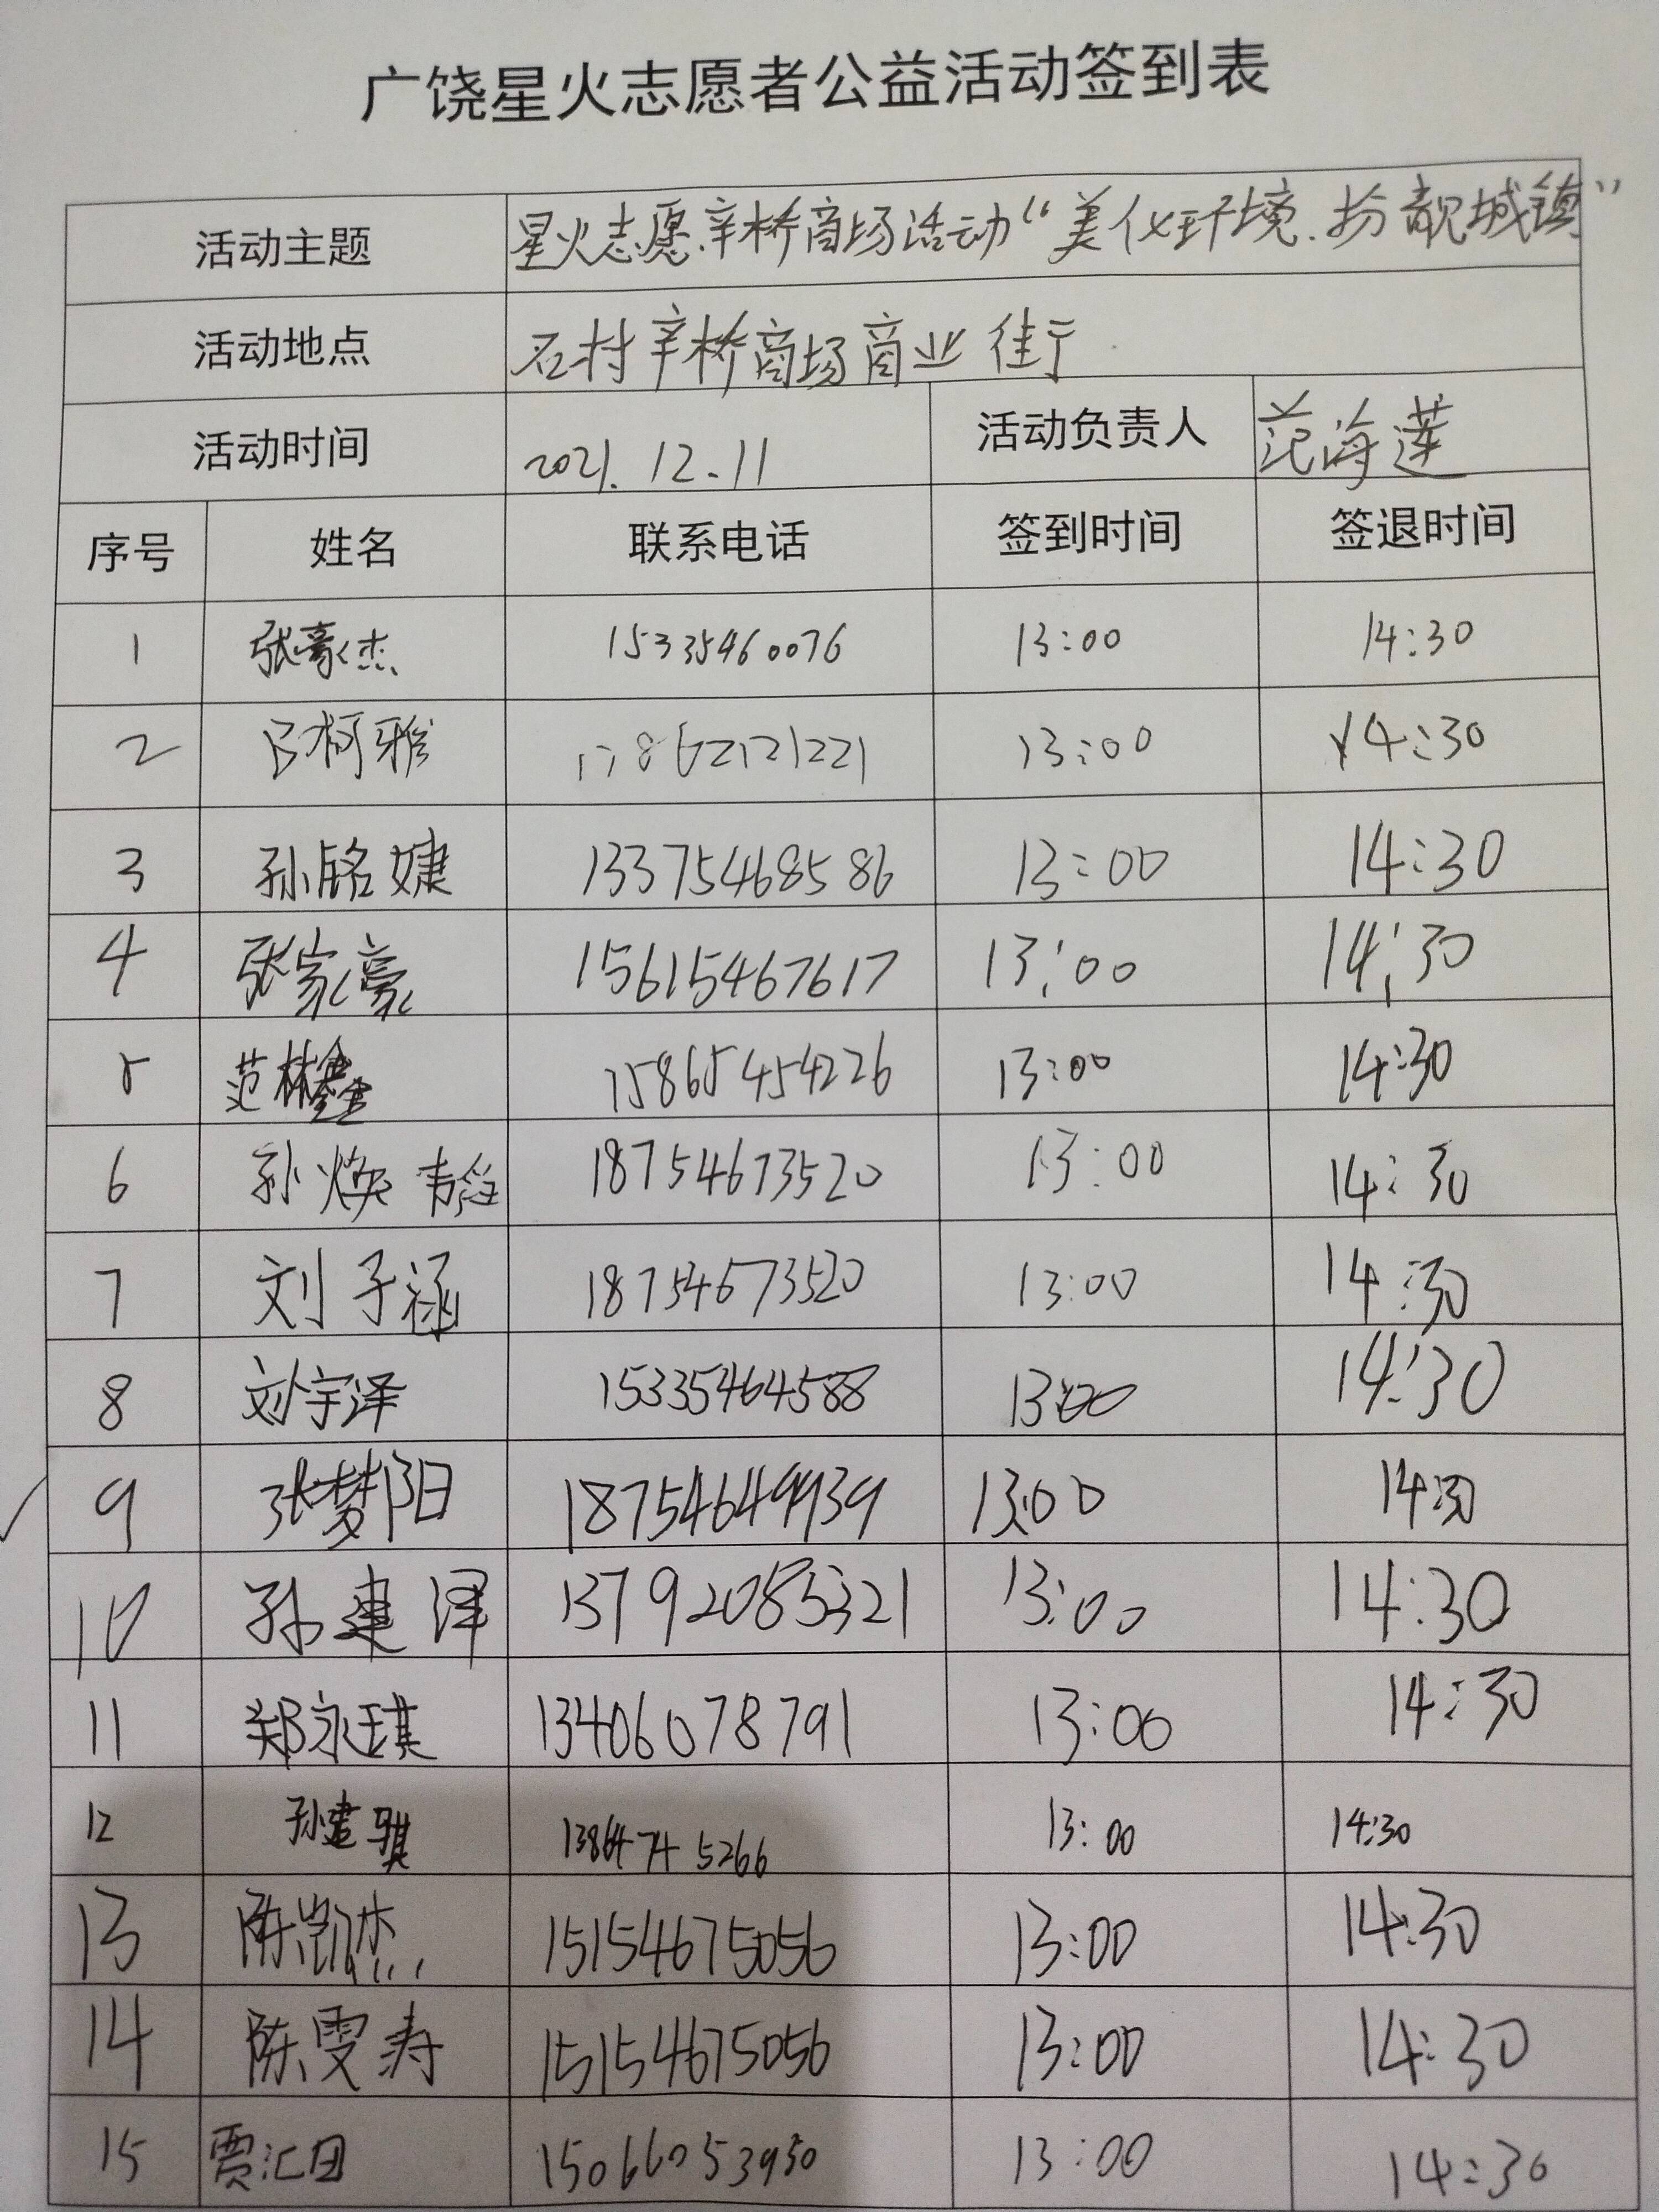 广饶星火志愿者公益活动签到表
活动主题 星火志愿.辛桥商场活动“美化环境.扮靓城镇”
活动地点 石村辛桥商场商业街
活动时间 2021.12.11 活动负责人 范海莲
序号 姓名 联系电话 签到时间 签退时间
1 张豪杰 15335460076 13:00 14:30
2 柯雅 17862121221 13:00 14:30
3 孙铭婕 13375468586 13:00 14:30
4 张家豪 15615467617 13:00 14:30
5 范林鑫 15865454226 13:00 14:30
6 孙焕 18754673520 13:00 14:30
7 刘子涵 18754673520 13:00 14:30
8 刘宇泽 15335464588 13:00 14:30
9 张梦阳 18754649939 13:00 14:30
10 孙建泽 13792085321 13:00 14:30
11 郑永琪 13406078791 13:00 14:30
12 孙建骐 13864745266 13:00 14:30
13 陈凯杰 15154675056 13:00 14:30
14 陈雯寿 15154675056 13:00 14:30
15 贾汇田 15066053950 13:00 14:30